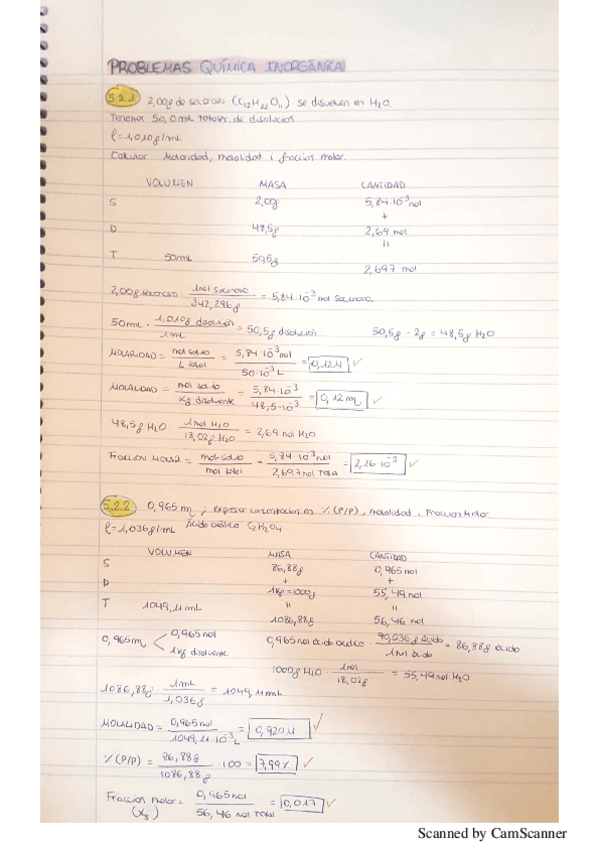 PROBLEMAS QUÍMICA INORGÁNICA
5.2.1 2,00g de sacarosa (C12H22O11) se disuelven en H2O.
Tenemos 50,0mL totales de disolución
ρ=1,010g/mL
Calcular Molaridad, molalidad i fracción molar.
VOLUMEN MASA CANTIDAD
S 2,00g 5,84·10⁻³mol
+
D 48,5g 2,69 mol
=
T 50mL 50,5g
2,697 mol
2,00g sacarosa · 1mol sacarosa / 342,296g = 5,84·10⁻³ mol sacarosa
50mL · 1,010g disolución / 1mL = 50,5g disolución 50,5g - 2g = 48,5g H2O
MOLARIDAD = mol soluto / L total = 5,84·10⁻³mol / 50·10⁻³L = 0,12M ✓
MOLALIDAD = mol soluto / Kg disolvente = 5,84·10⁻³ / 48,5·10⁻³ = 0,12m ✓
48,5g H2O · 1mol H2O / 18,02g H2O = 2,69 mol H2O
Fracción = mol soluto / mol total = 5,84·10⁻³mol / 2,697 mol Total = 2,16·10⁻³ ✓
5.2.2 0,965m ; expresar concentración en %(P/P), molalidad i Fracción Molar
ρ=1,036g/mL Ácido oxálico C2H2O4
VOLUMEN MASA CANTIDAD
S 86,88g 0,965mol
+ +
D 1kg=1000g 55,49mol
= =
T 1049,11mL 1086,88g 56,46 mol
0,965m < 0,965mol / 1kg disolvente 0,965mol ácido oxálico · 90,036g ácido / 1mol ácido = 86,88g ácido
1000g H2O · 1mol / 18,02g = 55,49mol H2O
1086,88g · 1mL / 1,036g = 1049,11mL
MOLALIDAD = 0,965mol / 1049,11·10⁻³L = 0,920M ✓
%(P/P) = 86,88g / 1086,88g · 100 = 7,99% ✓
Fracción molar = 0,965mol / 56,46 mol Total = 0,017 ✓
(Xs)
Scanned by CamScanner